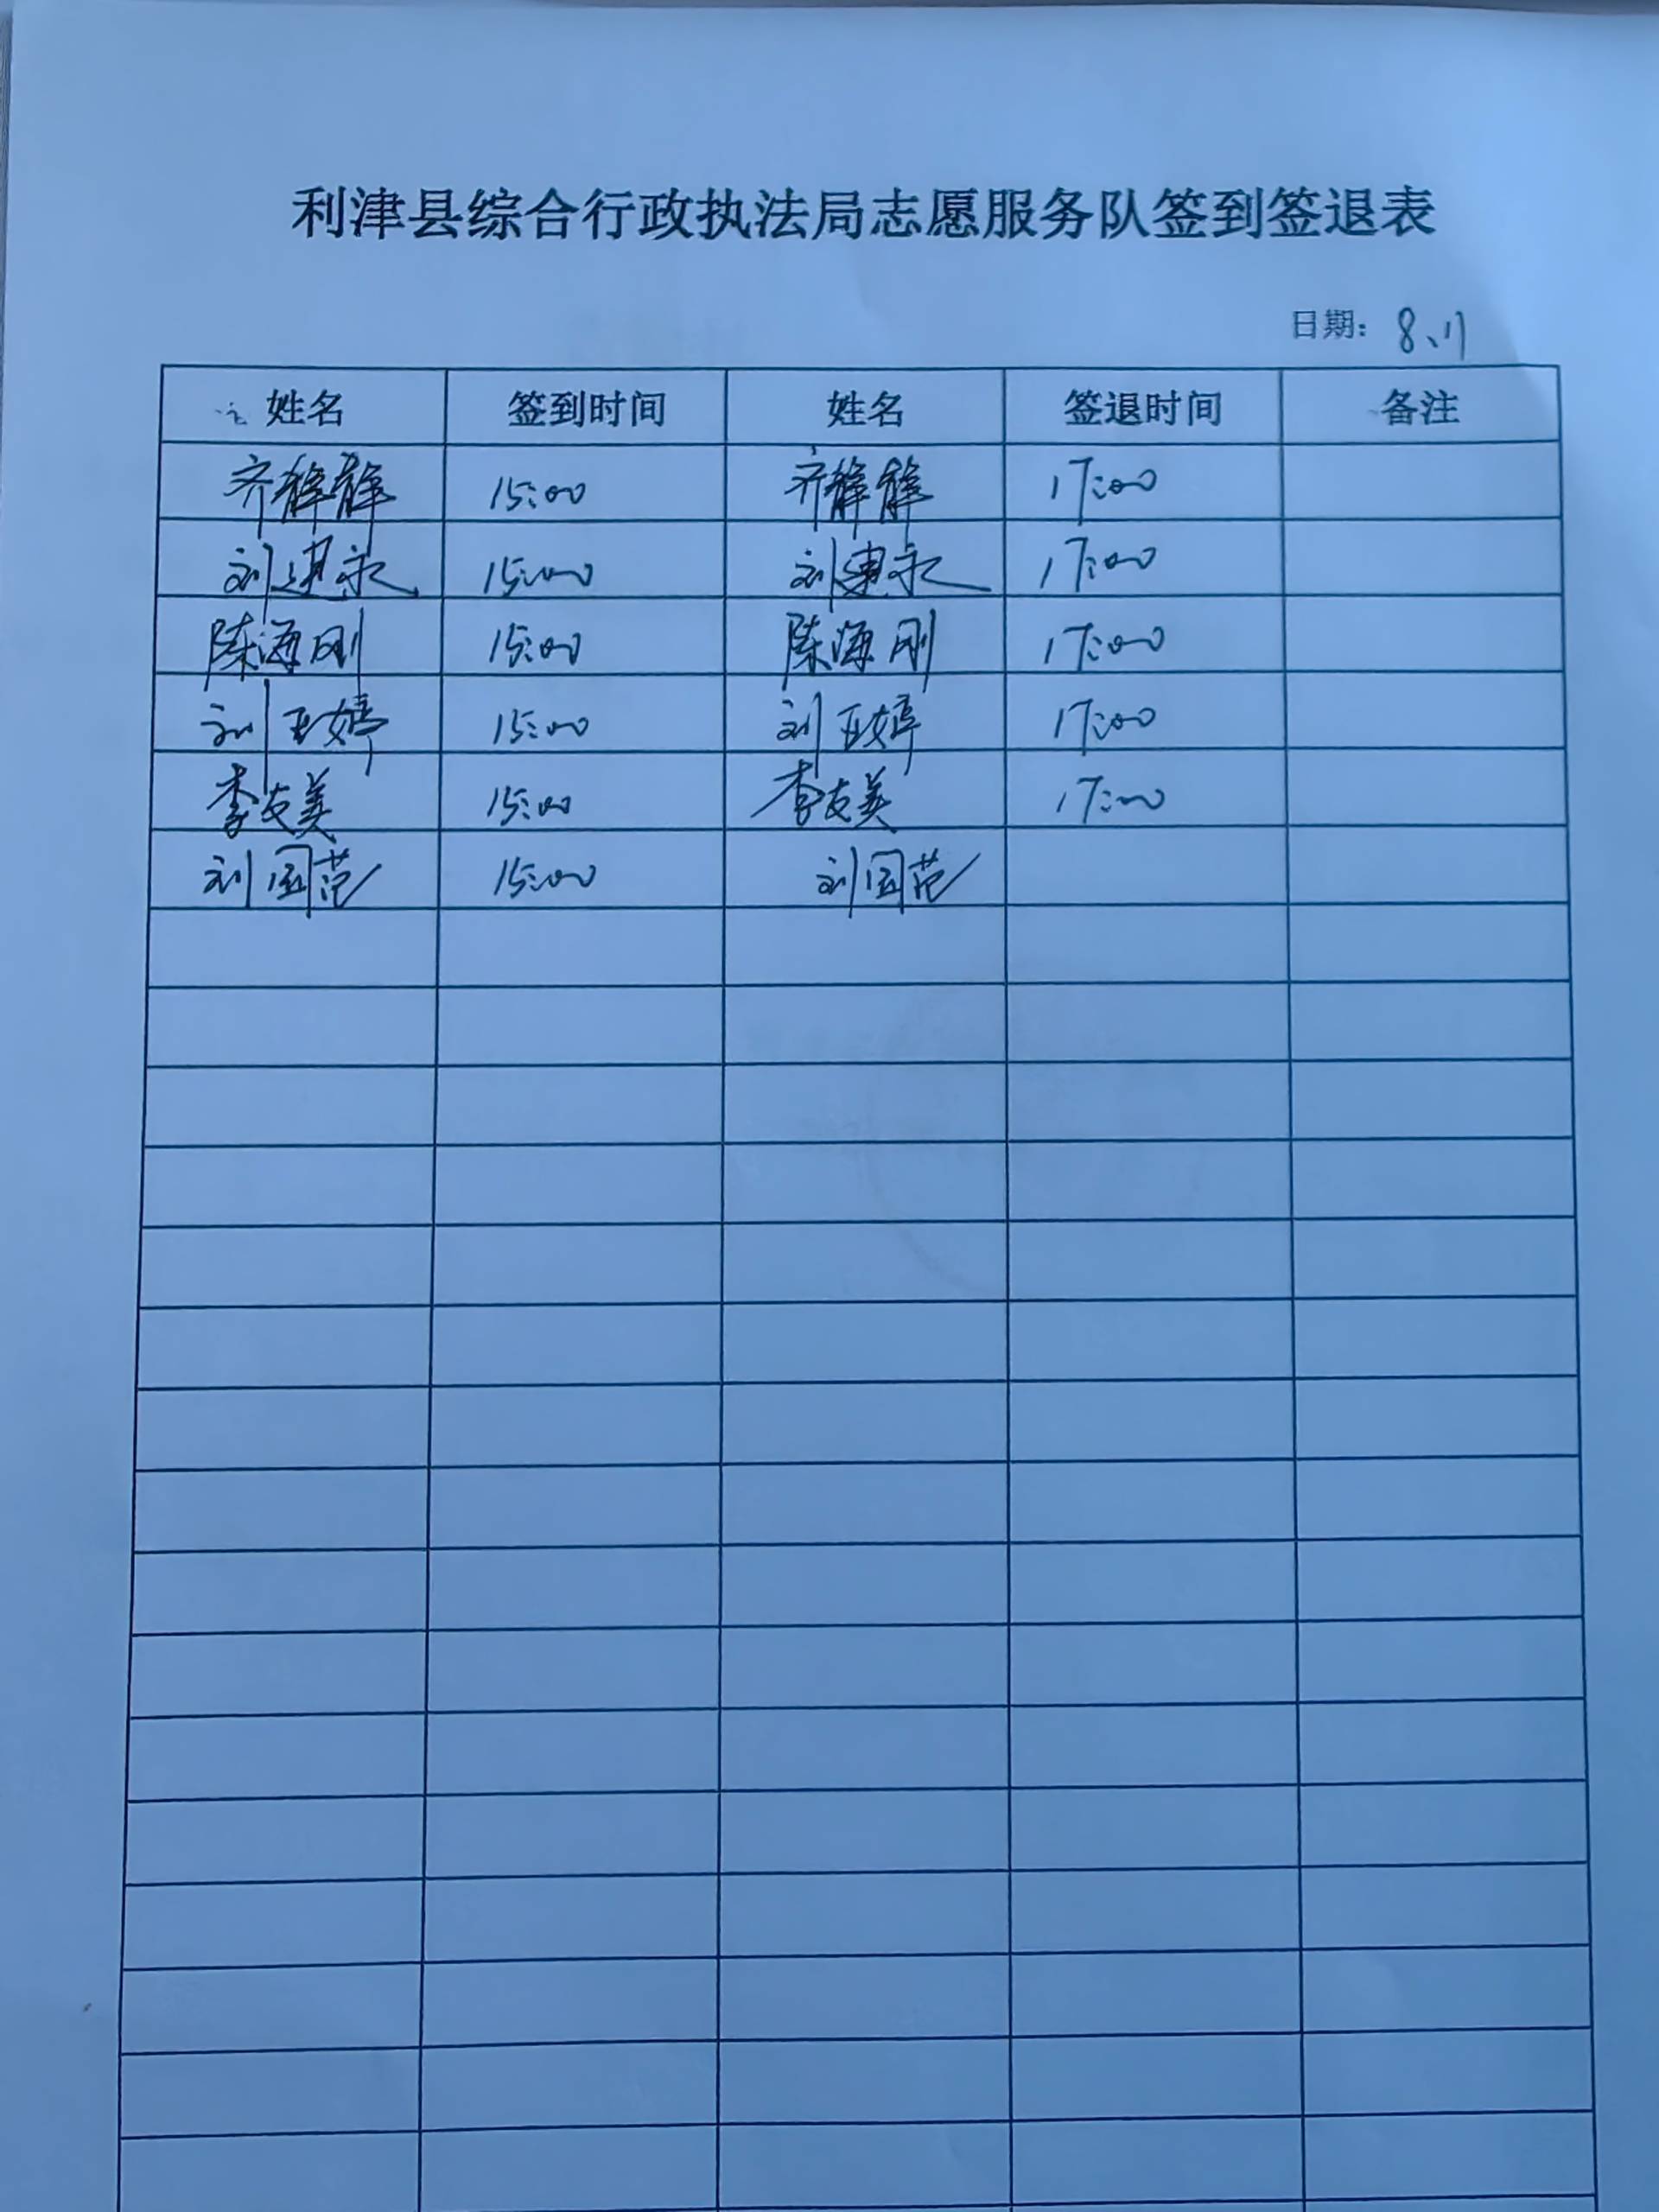 利津县综合行政执法局志愿服务队签到签退表
日期: 8、11
姓名 签到时间 姓名 签退时间 备注
齐静静 15:00 齐静静 17:00
刘建永 15:00 刘建永 17:00
陈海刚 15:00 陈海刚 17:00
刘玉婷 15:00 刘玉婷 17:00
李友美 15:00 李友美 17:00
刘国范 15:00 刘国范